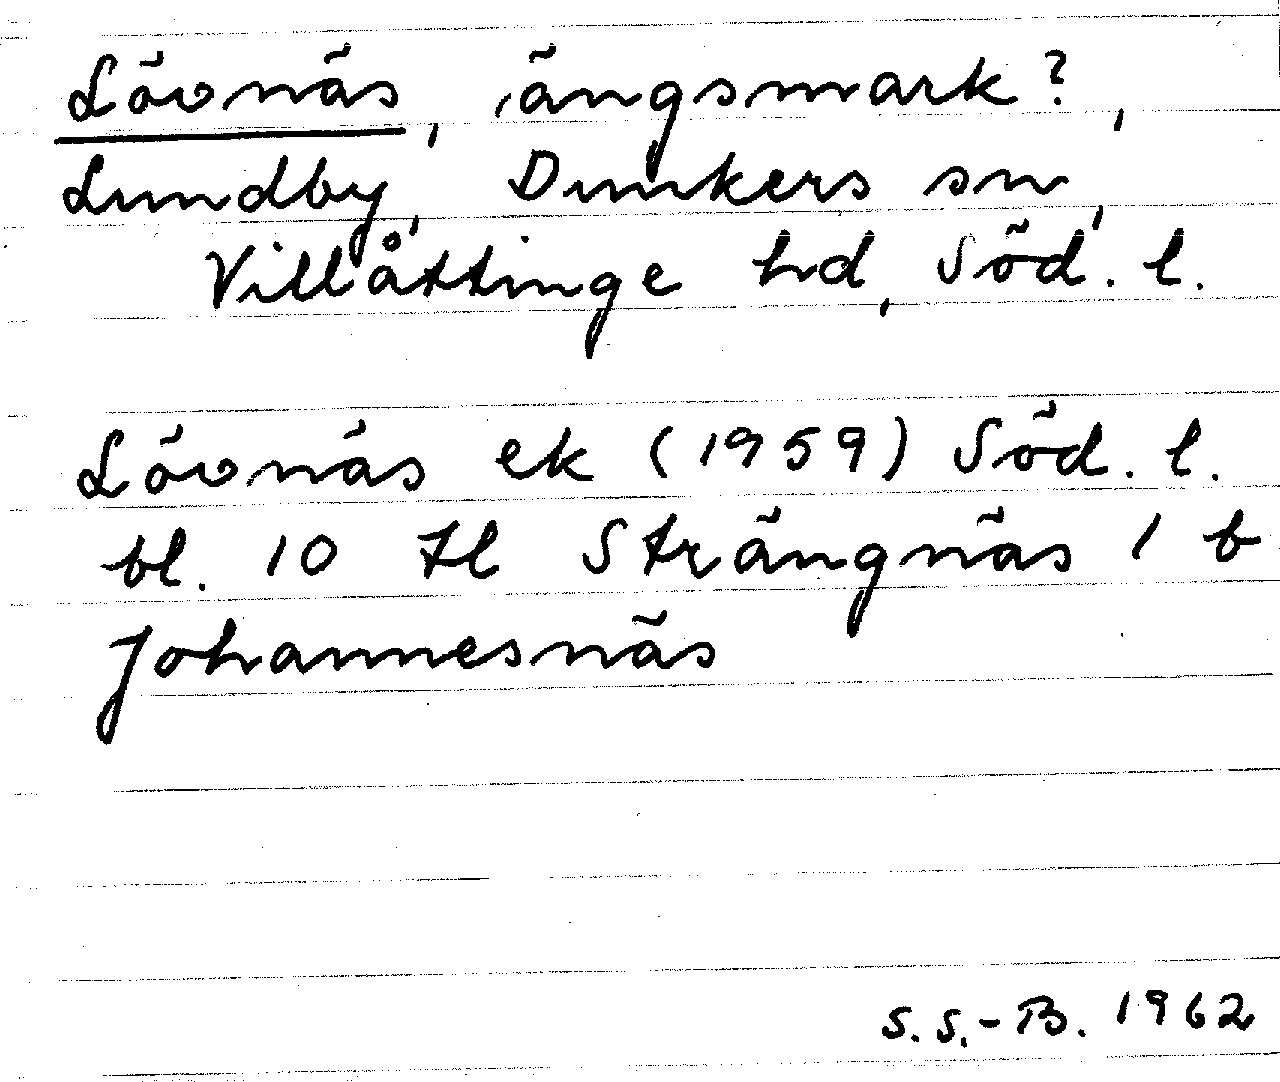 Lövnäs, ängsmark?,
Lundby, Dunkers sn,
Villåttinge hd, Söd. l.
Lövnäs ek (1959) Söd. l.
bl. 10 tl Strängnäs 1 b
Johannesnäs
S. S.-B. 1962